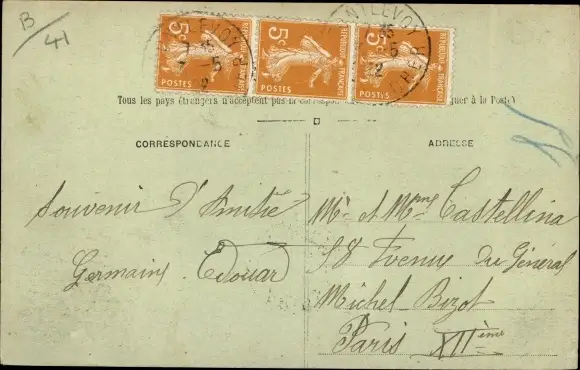 B/41
5c
POSTES
REPUBLIQUE FRANÇAISE
5c
POSTES
REPUBLIQUE FRANÇAISE
5c
POSTES
REPUBLIQUE FRANÇAISE
Tous les pays étrangers n'acceptent pas la correspon quer à la Poste)
CORRESPONDANCE
Souvenir d'Amitié
Germains Edouar
ADRESSE
Mr et Mme Castellina
58 Avenue du Général
Michel-Bizot
Paris XIIème